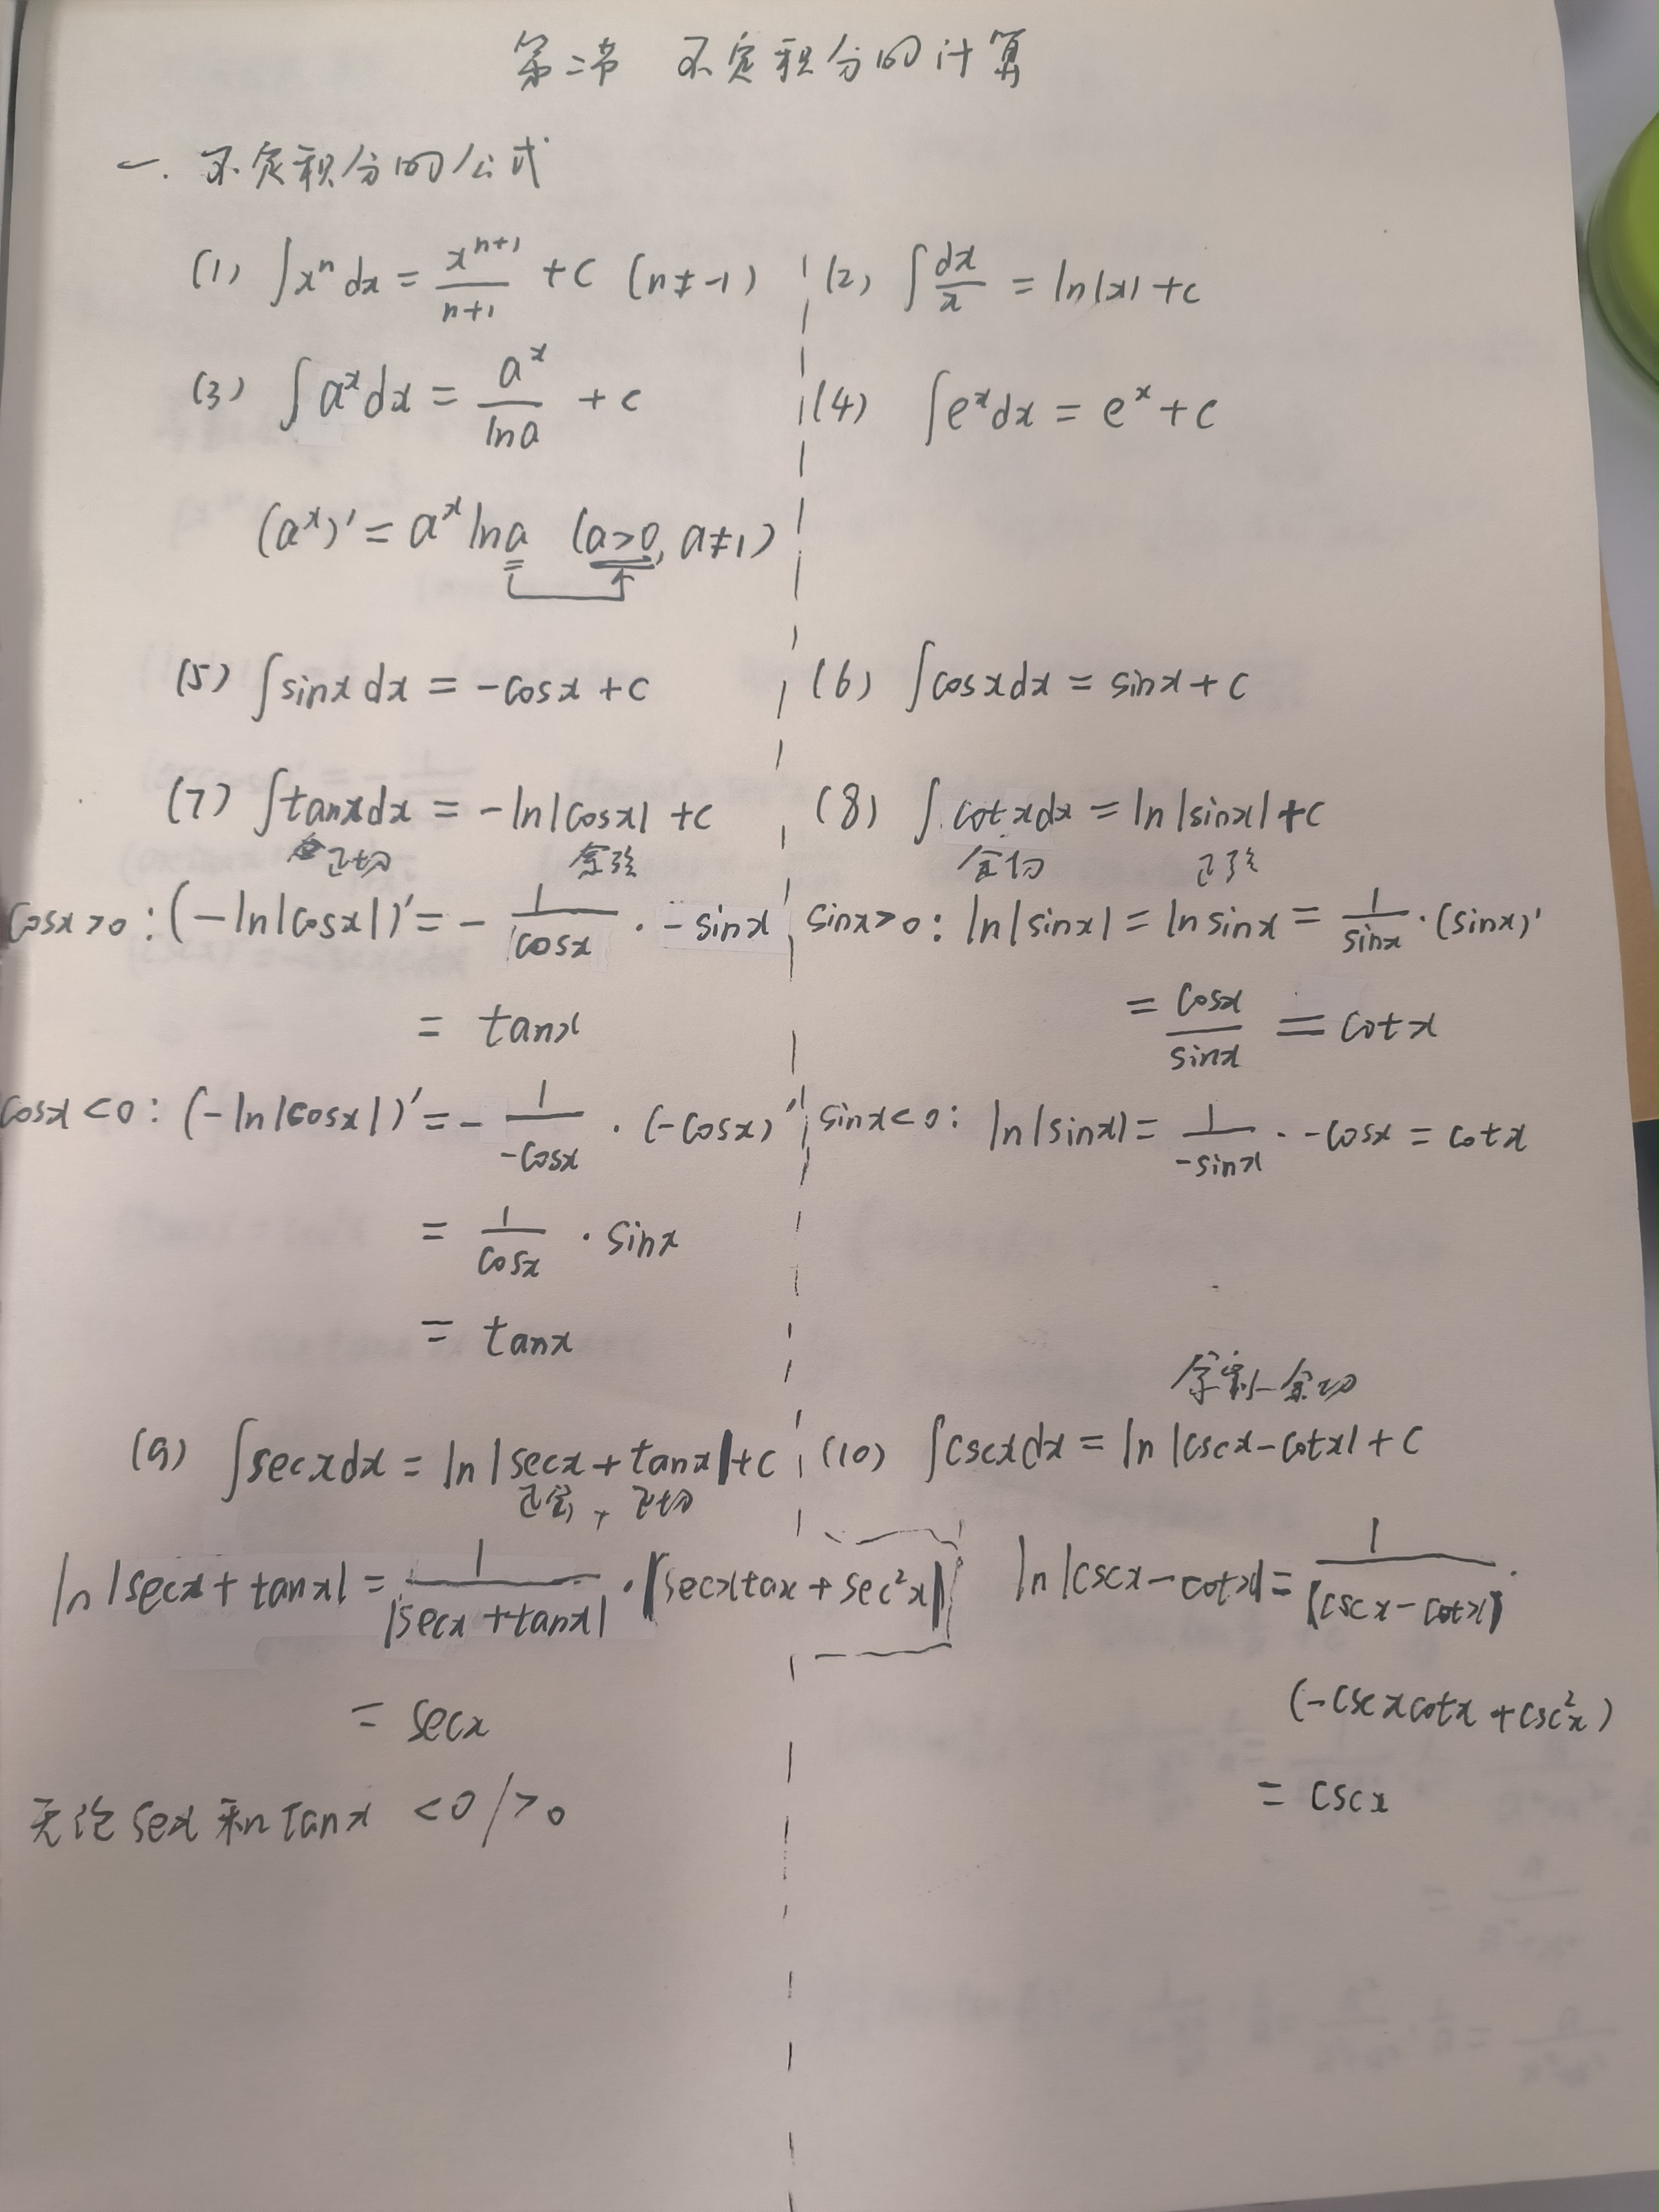 第二节 不定积分的计算
一. 不定积分的公式
(1) ∫xⁿdx = xⁿ⁺¹/(n+1) + C (n≠-1)
(2) ∫dx/x = ln|x| + C
(3) ∫aˣdx = aˣ/lna + C
(4) ∫eˣdx = eˣ + C
(aˣ)' = aˣlna (a>0, a≠1)
(5) ∫sinxdx = -cosx + C
(6) ∫cosxdx = sinx + C
(7) ∫tanxdx = -ln|cosx| + C
正切 余弦
(8) ∫cotxdx = ln|sinx| + C
余切 正弦
cosx>0: (-ln|cosx|)' = - 1/cosx · -sinx
= tanx
cosx<0: (-ln|cosx|)' = - 1/-cosx · (-cosx)'
= 1/cosx · sinx
= tanx
sinx>0: ln|sinx| = lnsinx = 1/sinx · (sinx)'
= cosx/sinx = cotx
sinx<0: ln|sinx| = 1/-sinx · -cosx = cotx
(9) ∫secxdx = ln|secx + tanx| + C
正割 + 正切
ln|secx + tanx| = 1/|secx + tanx| · |secxtax + sec²x|
= secx
无论secx和tanx <0/>0
余割-余切
(10) ∫cscxdx = ln|cscx - cotx| + C
ln|cscx - cotx| = 1/(cscx - cotx) ·
(-cscxcotx + csc²x)
= cscx